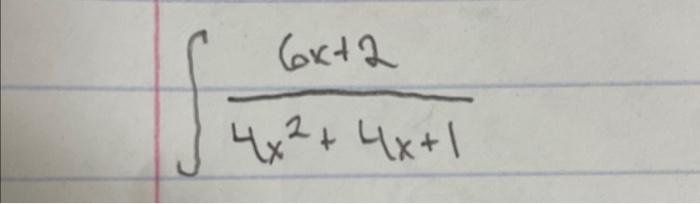 ∫ (6x+2)/(4x²+4x+1)